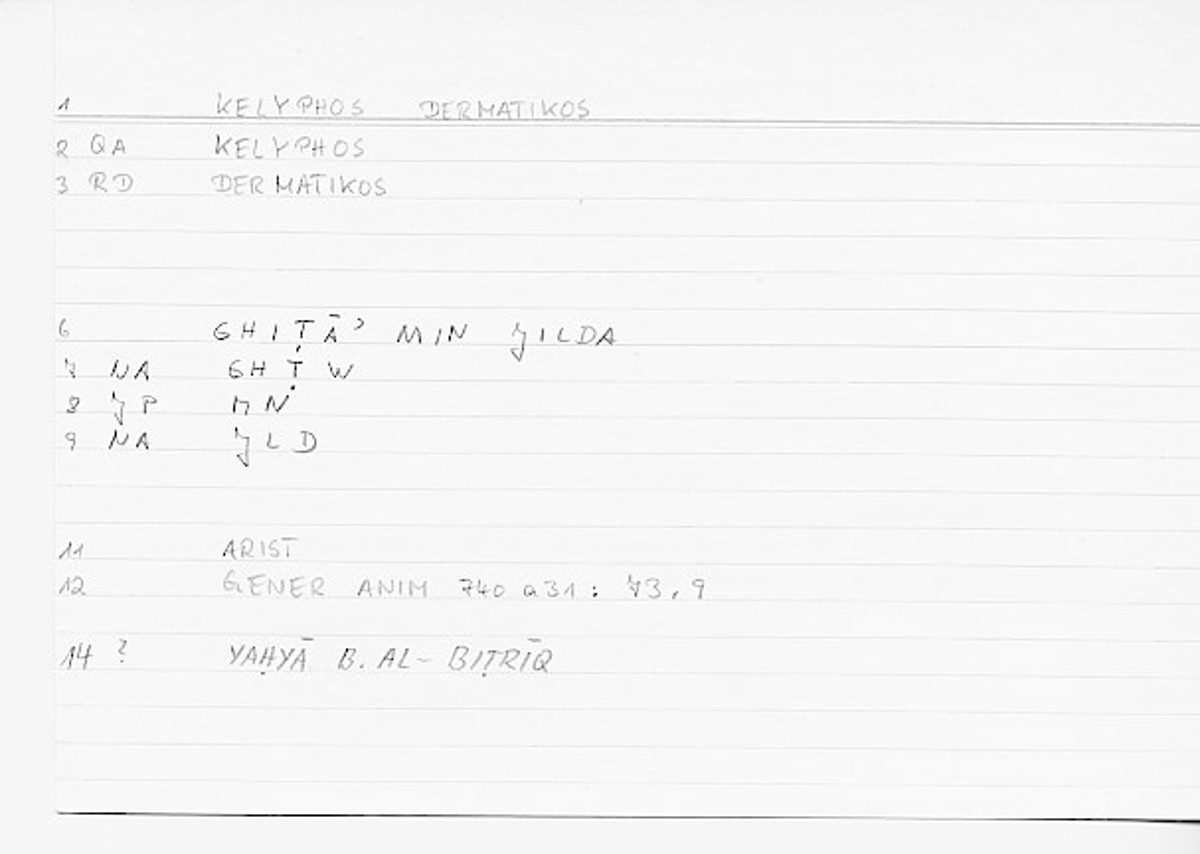 1 KELYPHOS DERMATIKOS
2 QA KELYPHOS
3 RD DERMATIKOS
6 GHIṬĀʾ MIN JILDA
7 NA GHṬW
8 JP MN
9 NA JLD
11 ARIST
12 GENER ANIM 740 a31 : 73,9
14 ? YAḤYĀ B. AL-BIṬRĪQ